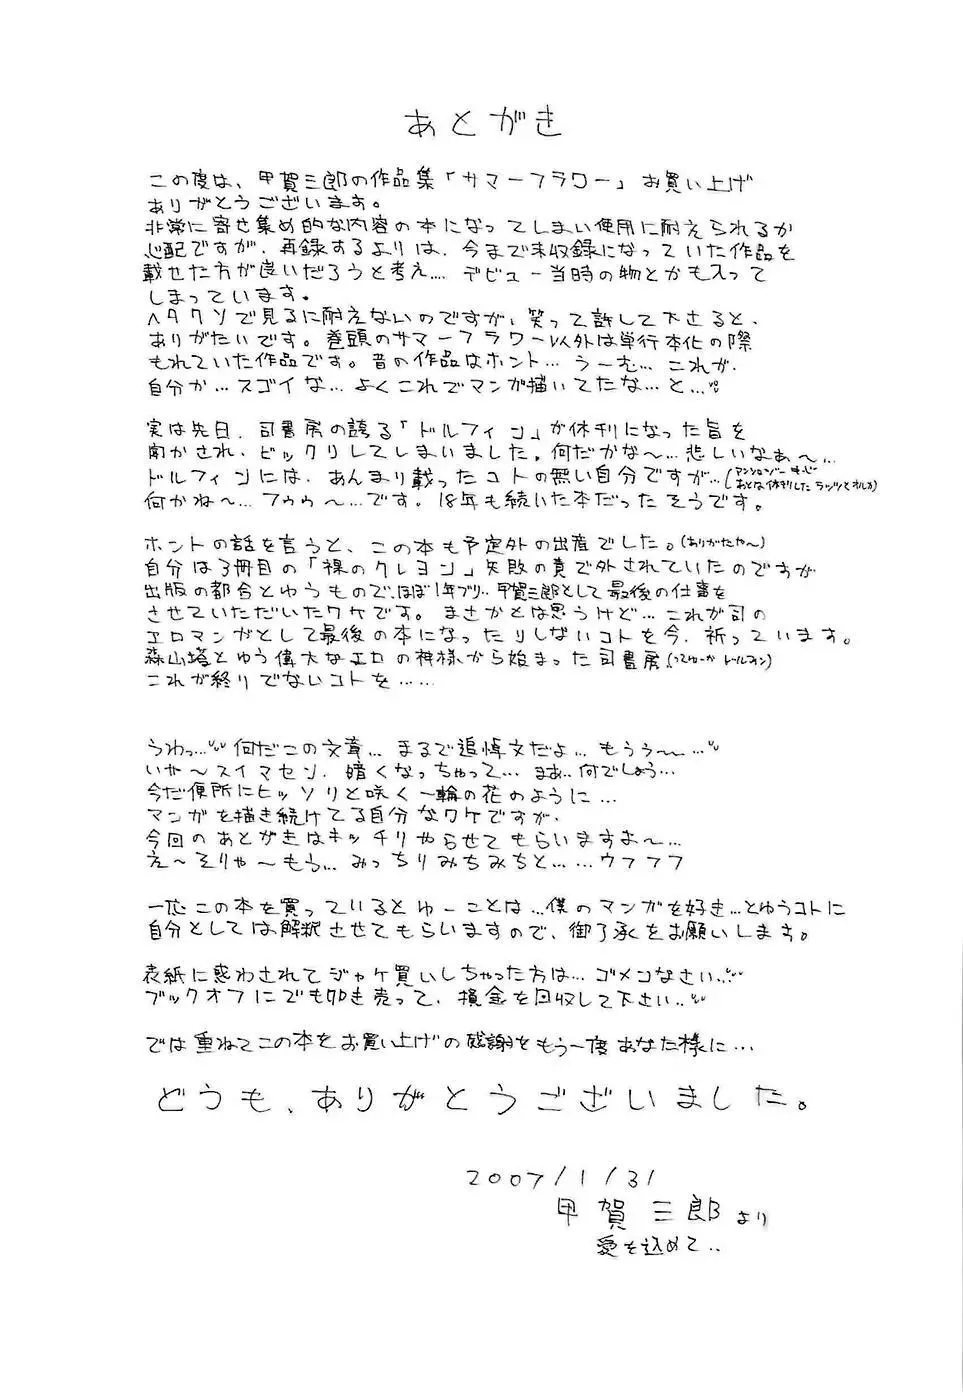 あとがき
この度は、甲賀三郎の作品集「サマーフラワー」お買い上げ
ありがとうございます。
非常に寄せ集め的な内容の本になってしまい使用に耐えられるか
心配ですが、再録するよりは、今まで未収録になっていた作品を
載せた方が良いだろうと考え.... デビュー当時の物とかも入って
しまっています。
ヘタクソで見るに耐えないのですが、笑って許して下さると、
ありがたいです。巻頭のサマーフラワー以外は単行本化の際
もれていた作品です。昔の作品はホント... うーむ... これが、
自分か...スゴイな... よくこれでマンガ描いてたな...と...
実は先日、司書房の誇る「ドルフィン」が休刊になった旨を
聞かされ、ビックリしてしまいました。何だかな〜... 悲しいなぁ〜...
ドルフィンには、あんまり載ったコトの無い自分ですが...(アンソロジー
あとは休刊したラッツとオルカ)
何かね〜... フゥゥ〜...です。18年も続いた本だったそうです。
ホントの話を言うと、この本も予定外の出産でした。(ありがたや〜)
自分は3冊目の「裸のクレヨン」失敗の責で外されていたのですが
出版の都合とゆうもので、ほぼ1年ブリ.. 甲賀三郎として最後の仕事を
させていただいたワケです。まさかとは思うけど... これが司の
エロマンガとして最後の本になったりしないコトを今、祈っています。
森山塔とゆう偉大なエロの神様から始まった司書房(ってゆーか ドルフィン)
これが終りでないコトを......
うわっ... 何だこの文章... まるで追悼文だよ... もうぅ〜...
いや〜スイマセン、暗くなっちゃって... まぁ.. 何でしょう...
今だ便所にヒッソリと咲く一輪の花のように...
マンガを描き続けてる自分なワケですが、
今回のあとがきはキッチリやらせてもらいますよ〜...
え〜そりゃ〜もう... みっちりみちみちと......ウフフフ
一応この本を買っているとゆーことは...僕のマンガを好き...とゆうコトに
自分としては解釈させてもらいますので、御了承をお願いします。
表紙に惑わされてジャケ買いしちゃった方は... ゴメンなさい...
ブックオフにでも叩き売って、損金を回収して下さい..
では重ねてこの本をお買い上げの感謝をもう一度あなた様に...
どうも、ありがとうございました。
2007/1/31
甲賀三郎より
愛を込めて..